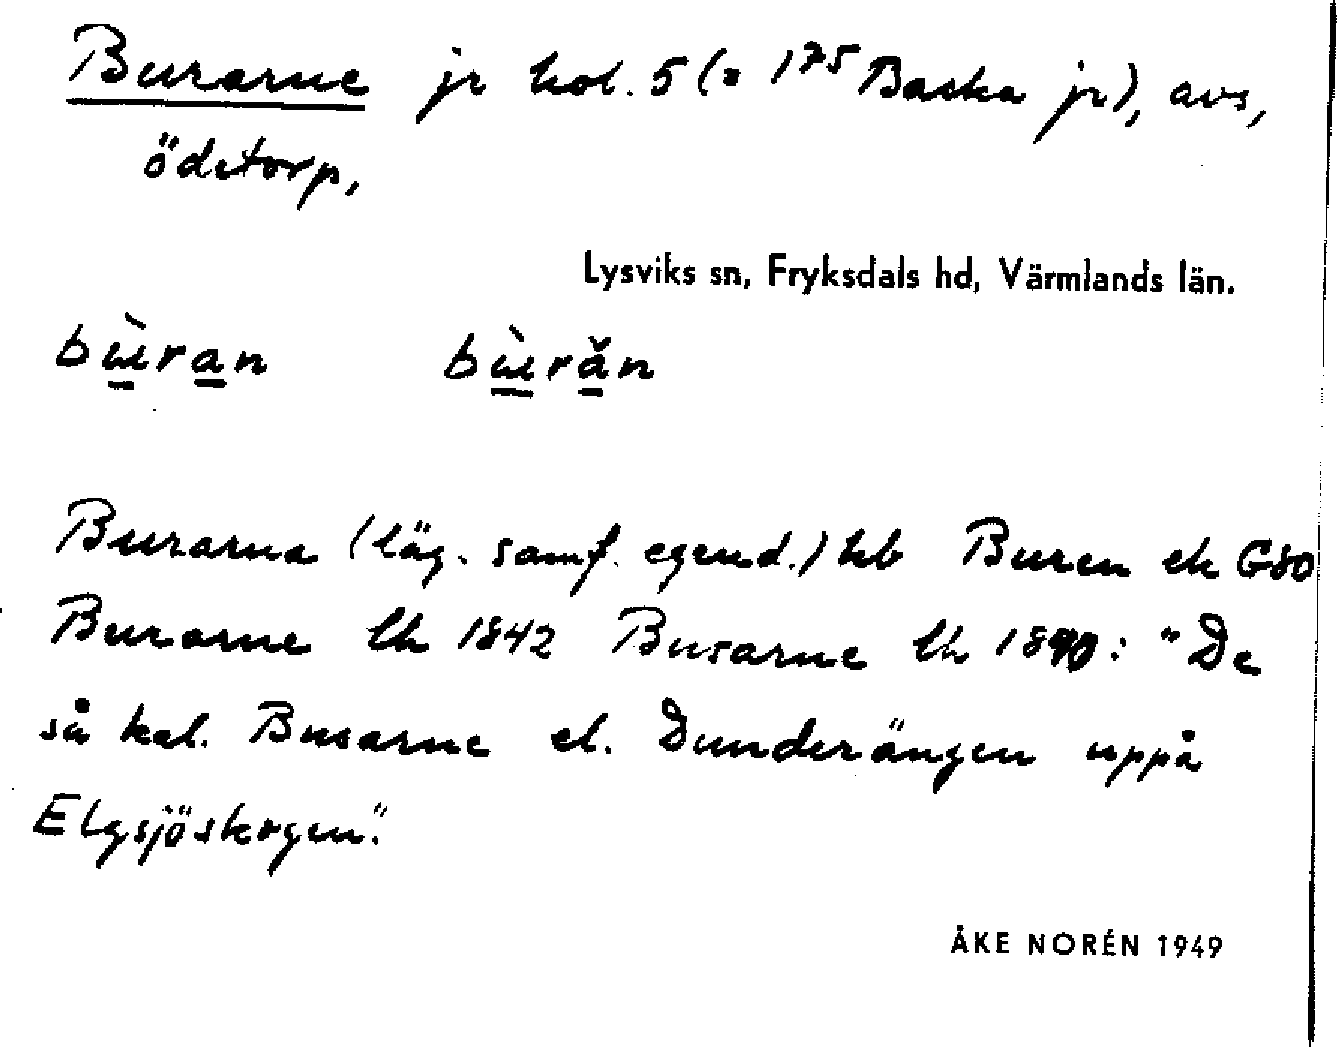 Burarne jr kol. 5 (= 175 Backa jr), avs,
ödetorp,
Lysviks sn, Fryksdals hd, Värmlands län.
bùran bùrăn
Burarna (läg. samf. egend.) hb Buren ek G80
Burarne lh 1842 Busarne lh 1890: "De
så kal. Busarne el. Dunderängen uppå
Elgsjöskogen".
ÅKE NORÉN 1949